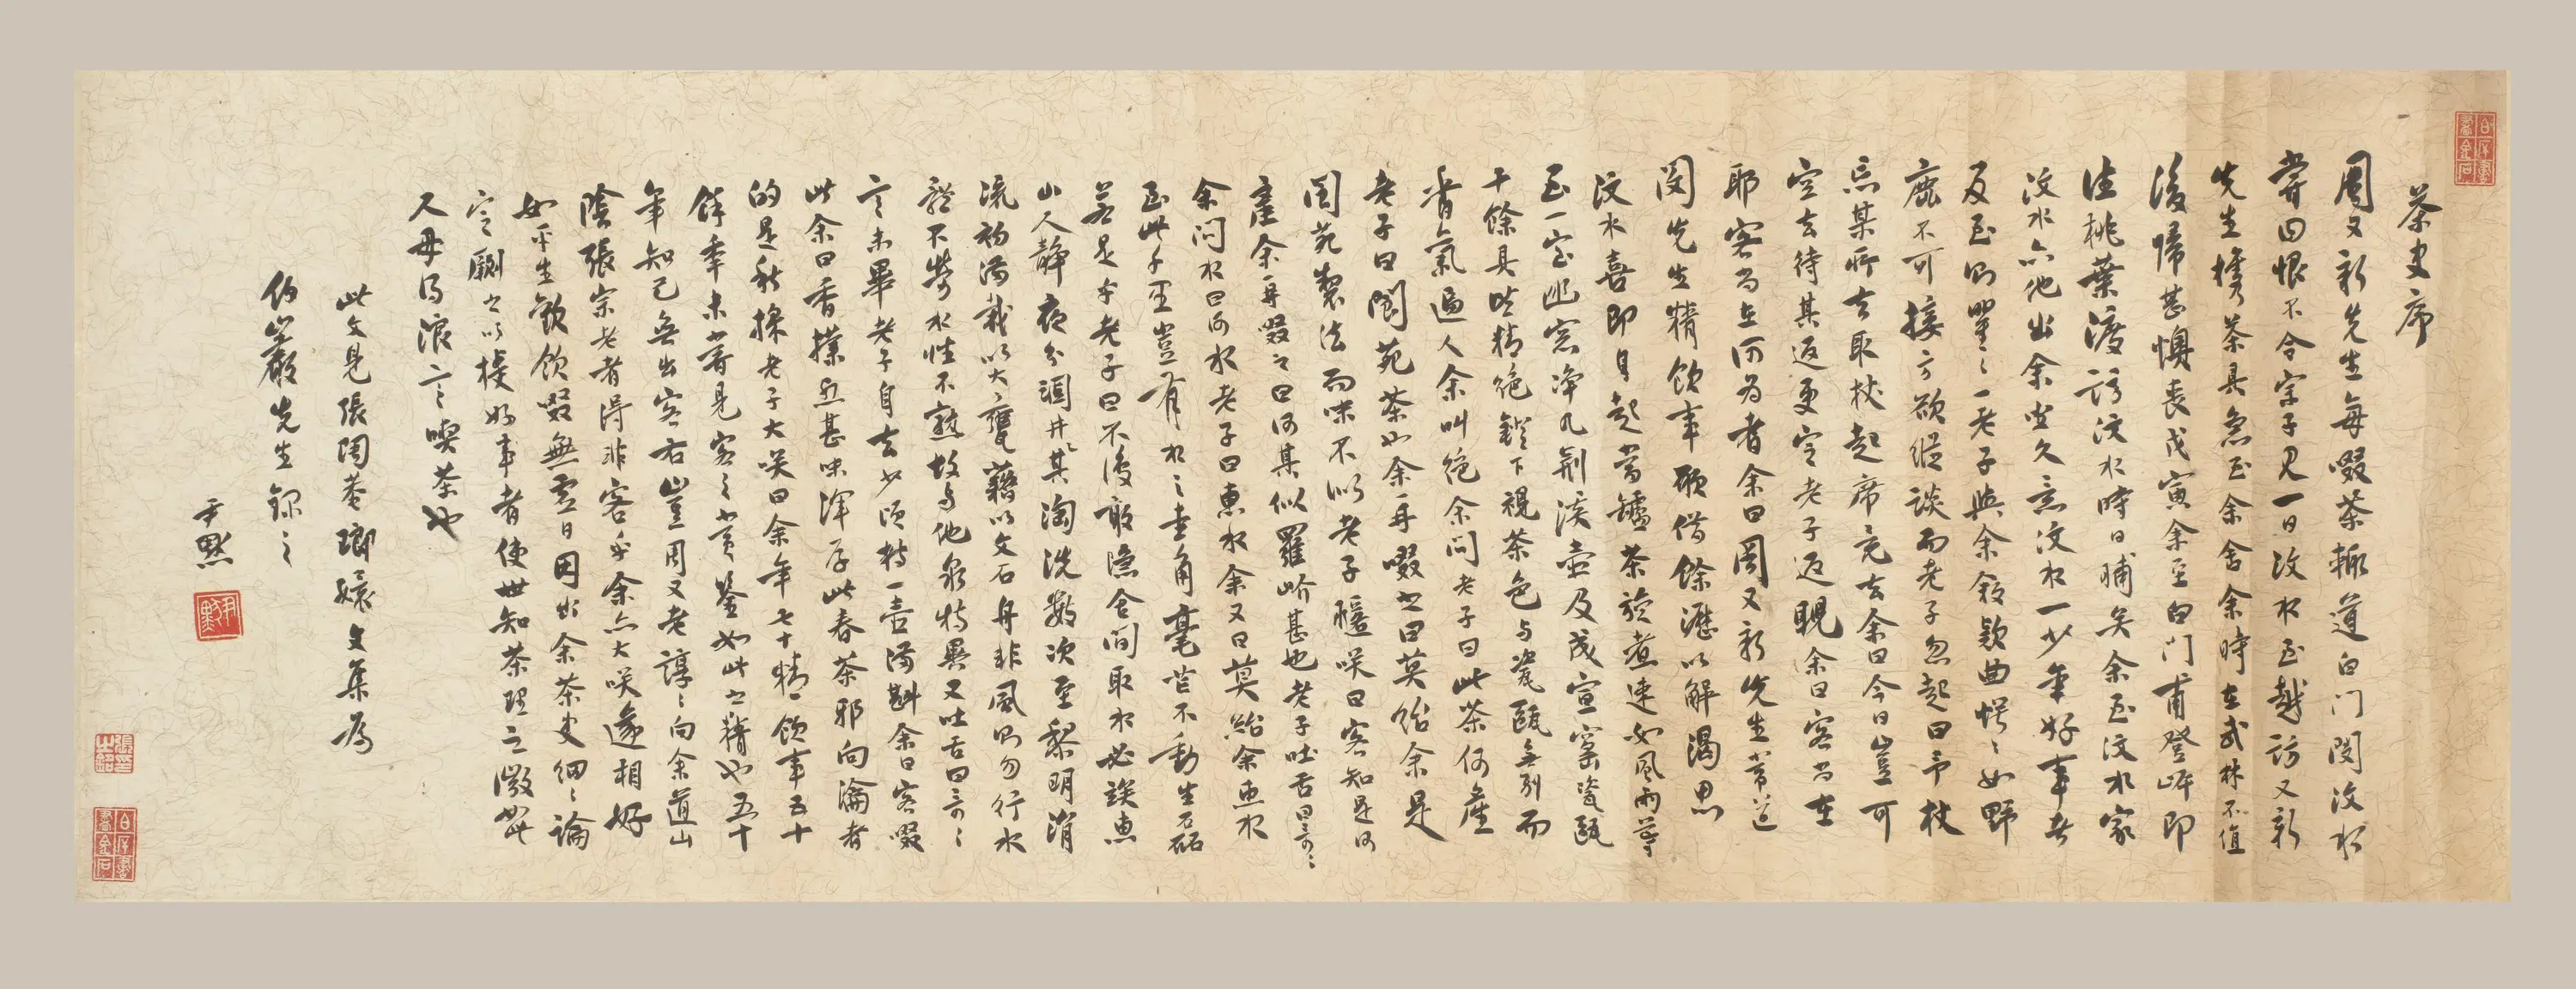 茶史序
周又新先生每啜茶輒道白门閔汶水
嘗曰恨不令宗子見一日汶水至越訪又新
先生攜茶具急至余舍余時在武林不值
後帰甚懊喪戊寅余至白门甫登岸即
往桃葉渡訪汶水時日晡矣余至汶水家
汶水亦他出余坐久意汶水一少年好事者
及至則瞿〻一老子與余敘款曲愕〻如野
鹿不可接方欲縱談而老子忽起曰予杖
忘某所去取杖起席竟去余曰今日豈可
空去待其返更定老子返睨余曰客尚在
耶客尚在何為者余曰周又新先生嘗道
閔先生精飲事願借餘瀝以解渴思
汶水喜即自起當鑪茶旋煮速如風雨導
至一室窓净几荆溪壺及成宣窯瓷甌
十餘具皆精绝鐙下視茶色与瓷甌無别而
香氣逼人余叫绝余问老子曰此茶何產
老子曰閬苑茶也余再啜之曰莫紿余是
閬苑製法而味不似老子匿咲曰客知是何
產余再啜之曰何其似羅岕甚也老子吐舌曰奇〻
余问水曰何水老子曰惠水余又曰莫紿余惠水
至此千里豈有水之圭角毫芒不動生磊
若是乎老子曰不復敢隱舍间取水必誤惠
山人静夜分涸井〻其淘洗數次至黎明涓
流初滿載以大甕藉以文石舟非風則勿行水
體不勞水性不熟故与他泉特異又吐舌曰奇〻
言未畢老子自去少頃持一壺滿斟余曰客啜
此余曰香撲烈甚味渾厚此春茶耶向瀹者
的是秋採老子大咲曰余年七十精飲事五十
餘年未嘗見客之賞鑒如此之精也五十
年知己無出客右豈周又老諄〻向余道山
陰張宗老者得非客乎余亦大咲遂相好
如平生歡飲啜無虛日因出余茶史細〻論
定劂之以授好事者使世知茶理之微如此
人毋得浪言喫茶也
此文見張陶菴瑯嬛文集為
伯巖先生録之
尹默
尹默